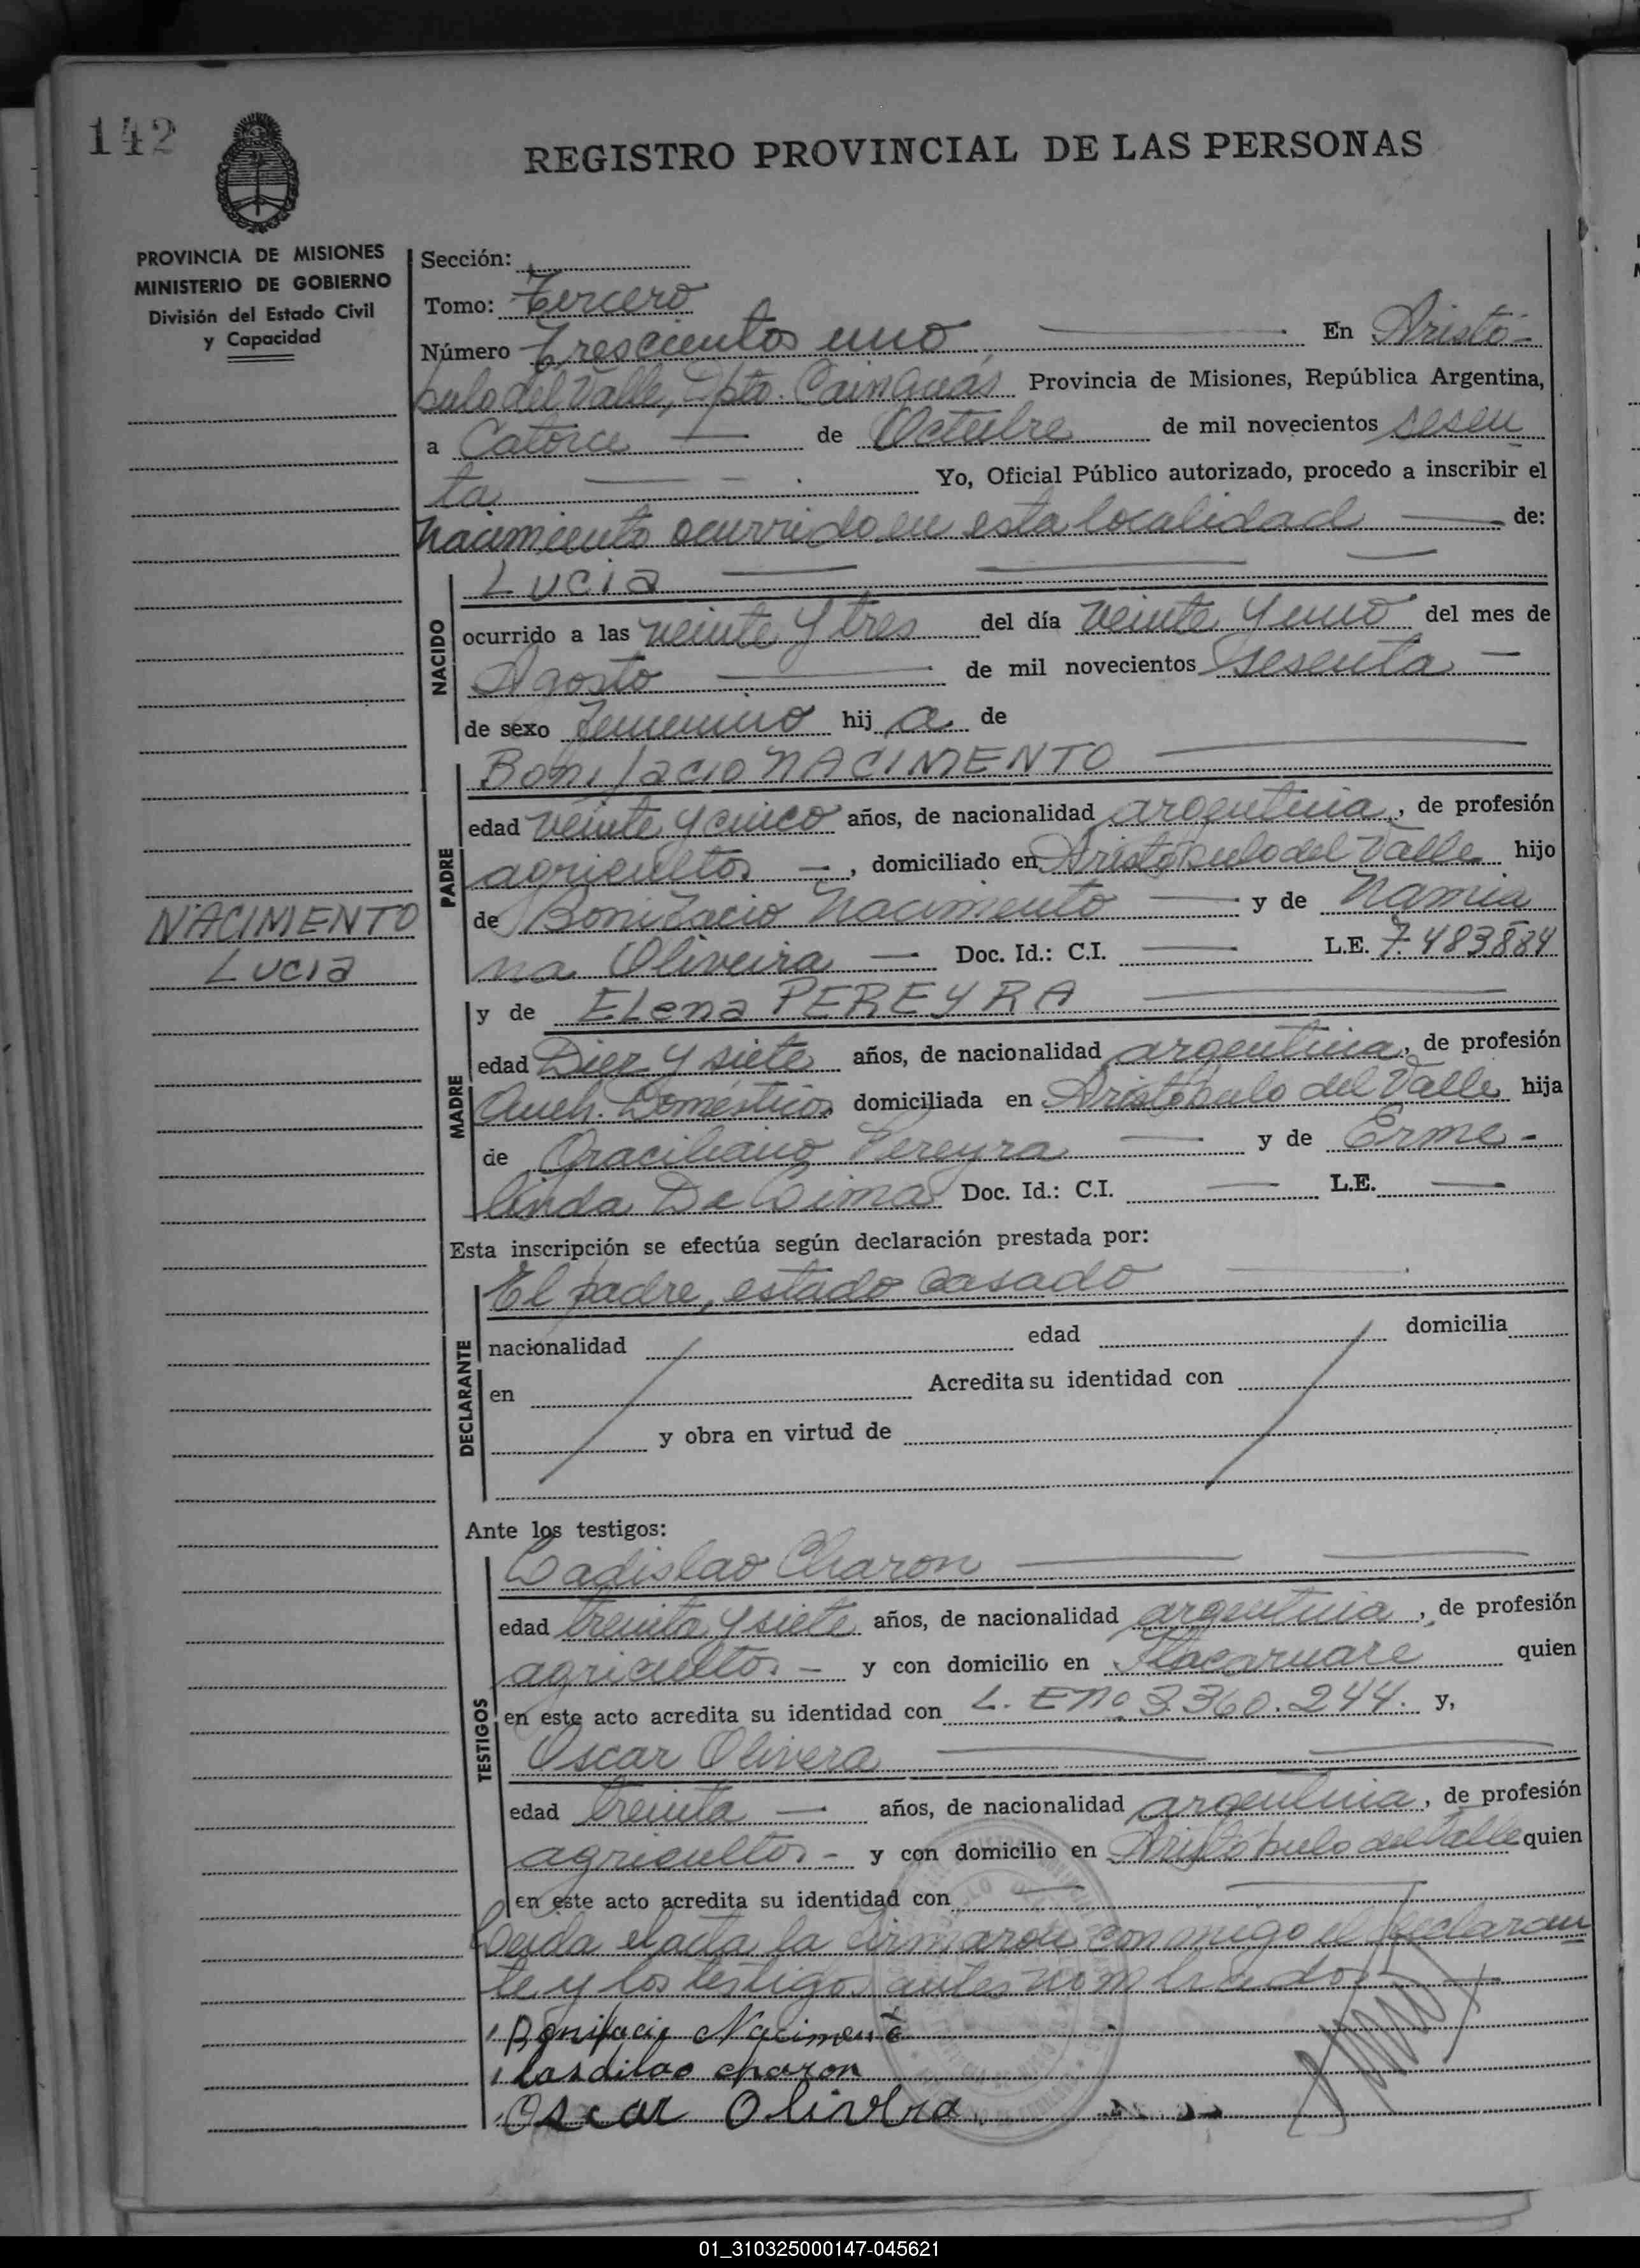 142
REGISTRO PROVINCIAL DE LAS PERSONAS
PROVINCIA DE MISIONES
MINISTERIO DE GOBIERNO
División del Estado Civil
y Capacidad
Sección:
Tomo: Tercero
Número Trescientos uno En Aristó-
bulo del Valle, Dpto. Cainguás Provincia de Misiones, República Argentina,
a Catorce de Octubre de mil novecientos sesen
ta Yo, Oficial Público autorizado, procedo a inscribir el
nacimiento ocurrido en esta localidad de:
NACIDO
Lucia
ocurrido a las veinte y tres del día veinte y uno del mes de
Agosto de mil novecientos sesenta
de sexo femenino hij a de
PADRE
Bonifacio NACIMENTO
edad veinte y cinco años, de nacionalidad argentina, de profesión
agricultor, domiciliado en Aristóbulo del Valle hijo
de Bonifacio Nacimento y de
Oliveira Doc. Id.: C.I. L.E. 7.483.884
NACIMENTO
Lucia
MADRE
y de Elena PEREYRA
edad Diez y siete años, de nacionalidad argentina, de profesión
Queh. Domésticos domiciliada en Aristóbulo del Valle hija
de Graciliano Pereyra y de Erme-
linda De Lima Doc. Id.: C.I. L.E.
Esta inscripción se efectúa según declaración prestada por:
DECLARANTE
El padre, estado casado
nacionalidad edad domicilia
en Acredita su identidad con
y obra en virtud de
Ante los testigos:
TESTIGOS
Ladislao Charon
edad treinta y siete años, de nacionalidad argentina, de profesión
agricultor - y con domicilio en Itacaruare quien
en este acto acredita su identidad con L. E Nº 3.360.244. y,
Oscar Olivera
edad treinta años, de nacionalidad argentina, de profesión
agricultor - y con domicilio en Aristóbulo del Valle quien
en este acto acredita su identidad con
Leída el acta la firmaron conmigo el declaran
te y los testigos antes nombrados
Bonifacio Nacimento
lasdilao charon
Oscar Olivera
01_310325000147-045621